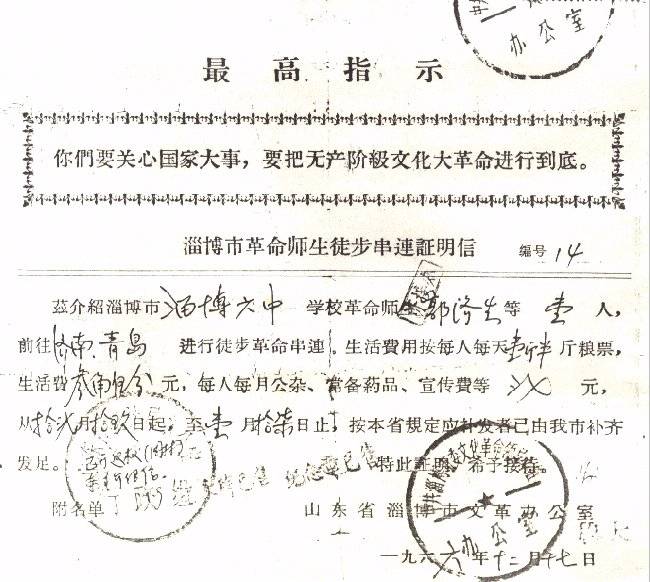 办公室
最高指示
你們要关心国家大事，要把无产阶級文化大革命进行到底。
淄博市革命师生徒步串連証明信 编号 14
茲介紹淄博市 淄博六中 学校革命师生郭済生等 壹 人，
前往济南、青岛 进行徒步革命串連。生活費用按每人每天壹斤半斤粮票，
生活費叁角 分元，每人每月公杂、常备药品、宣传費等 元，
从拾弍月拾玖日起，至壹月拾柒日止，按本省規定应补发者已由我市补齐
发足。 纪念章已售 特此証明，希予接待。
附名单 山东省淄博市文革办公室
办公室
一九六六年十二月十七日